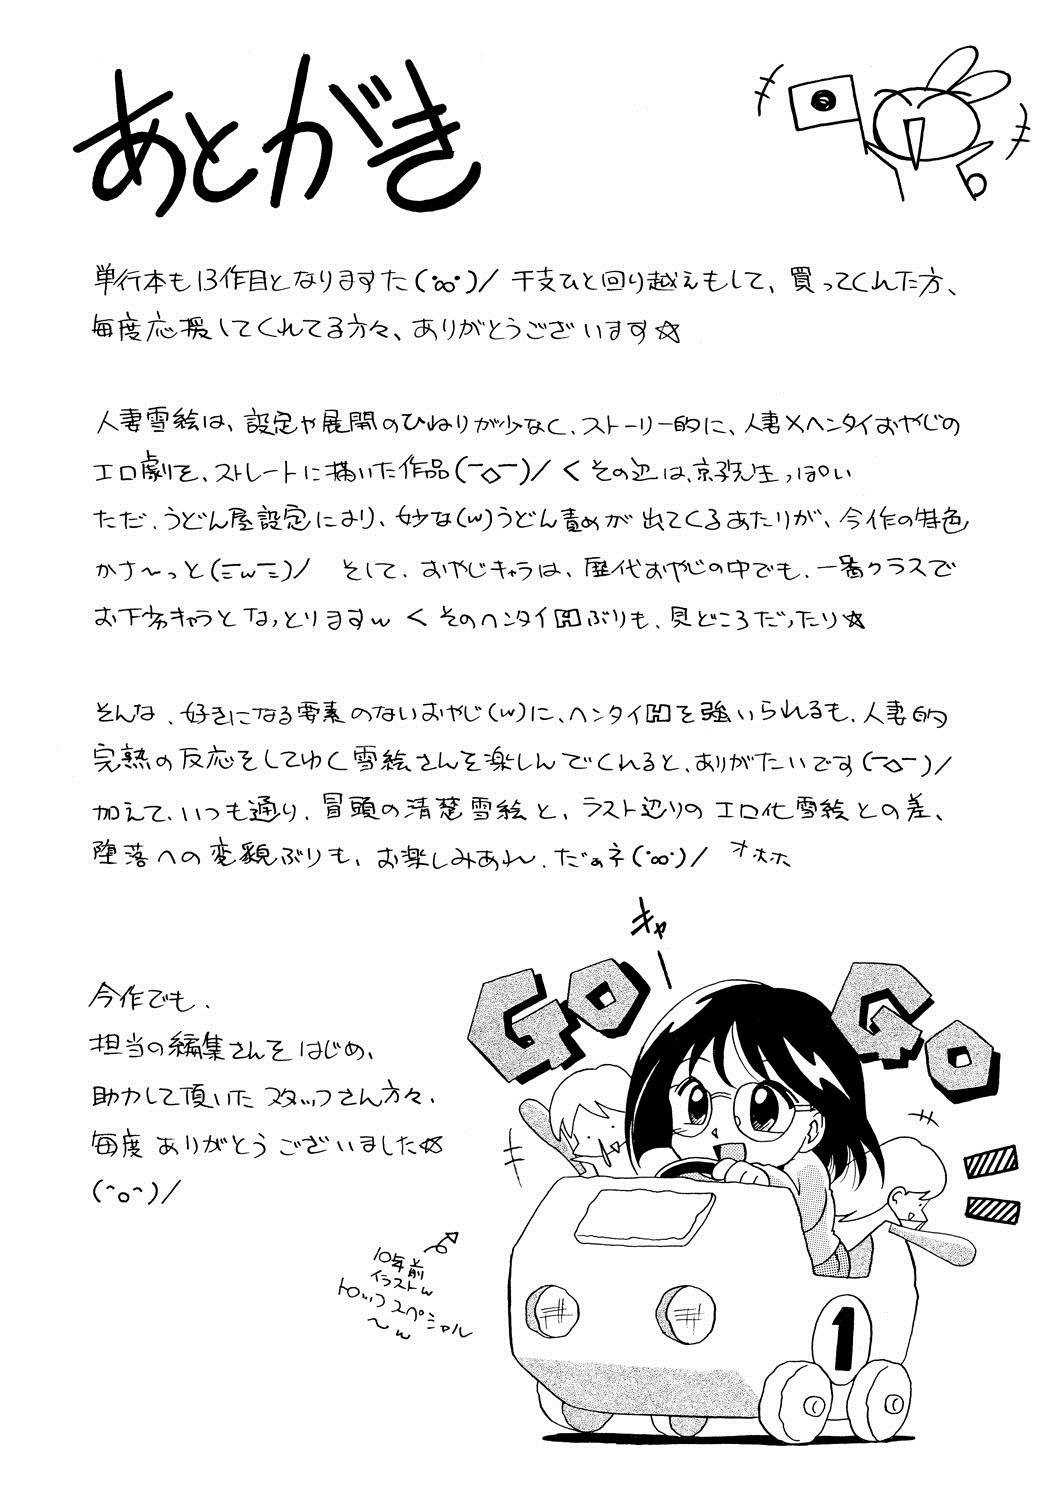 あとがき
単行本も13作目となりますた(・∞・)/ 干支ひと回り越えもして、買ってくんた方、
毎度応援してくれてる方々、ありがとうございます☆
人妻雪絵は、設定や展開のひねりが少なく、ストーリー的に、人妻×ヘンタイおやじの
エロ劇を、ストレートに描いた作品(￣◇￣)/ < その辺は、京子先生っぽい
ただ、うどん屋設定により、妙な(w)うどん責めが出てくるあたりが、今作の特色
かさ〜っと(ーwー)/ そして、おやじキャラは、歴代おやじの中でも、一番クラスで
お下劣キャラとなっとりますw < そのヘンタイHぶりも、見どころだったり☆
そんな、好きになる要素のないおやじ(w)に、ヘンタイHを強いられるも、人妻的
完熟の反応をしてゆく雪絵さんを楽しんでくれると、ありがたいです(￣◇￣)/
加えて、いつも通り、冒頭の清楚雪絵と、ラスト辺りのエロ化雪絵との差、
堕落への変貌ぶりも、お楽しみあれ、だぁネ(・∞・)/ オホホ
今作でも、
担当の編集さんをはじめ、
助力して頂いたスタッフさん方々、
毎度ありがとうございました☆
(^o^)/
キャー
GO GO
10年前
イラストw
トップスペシャル
〜w
1